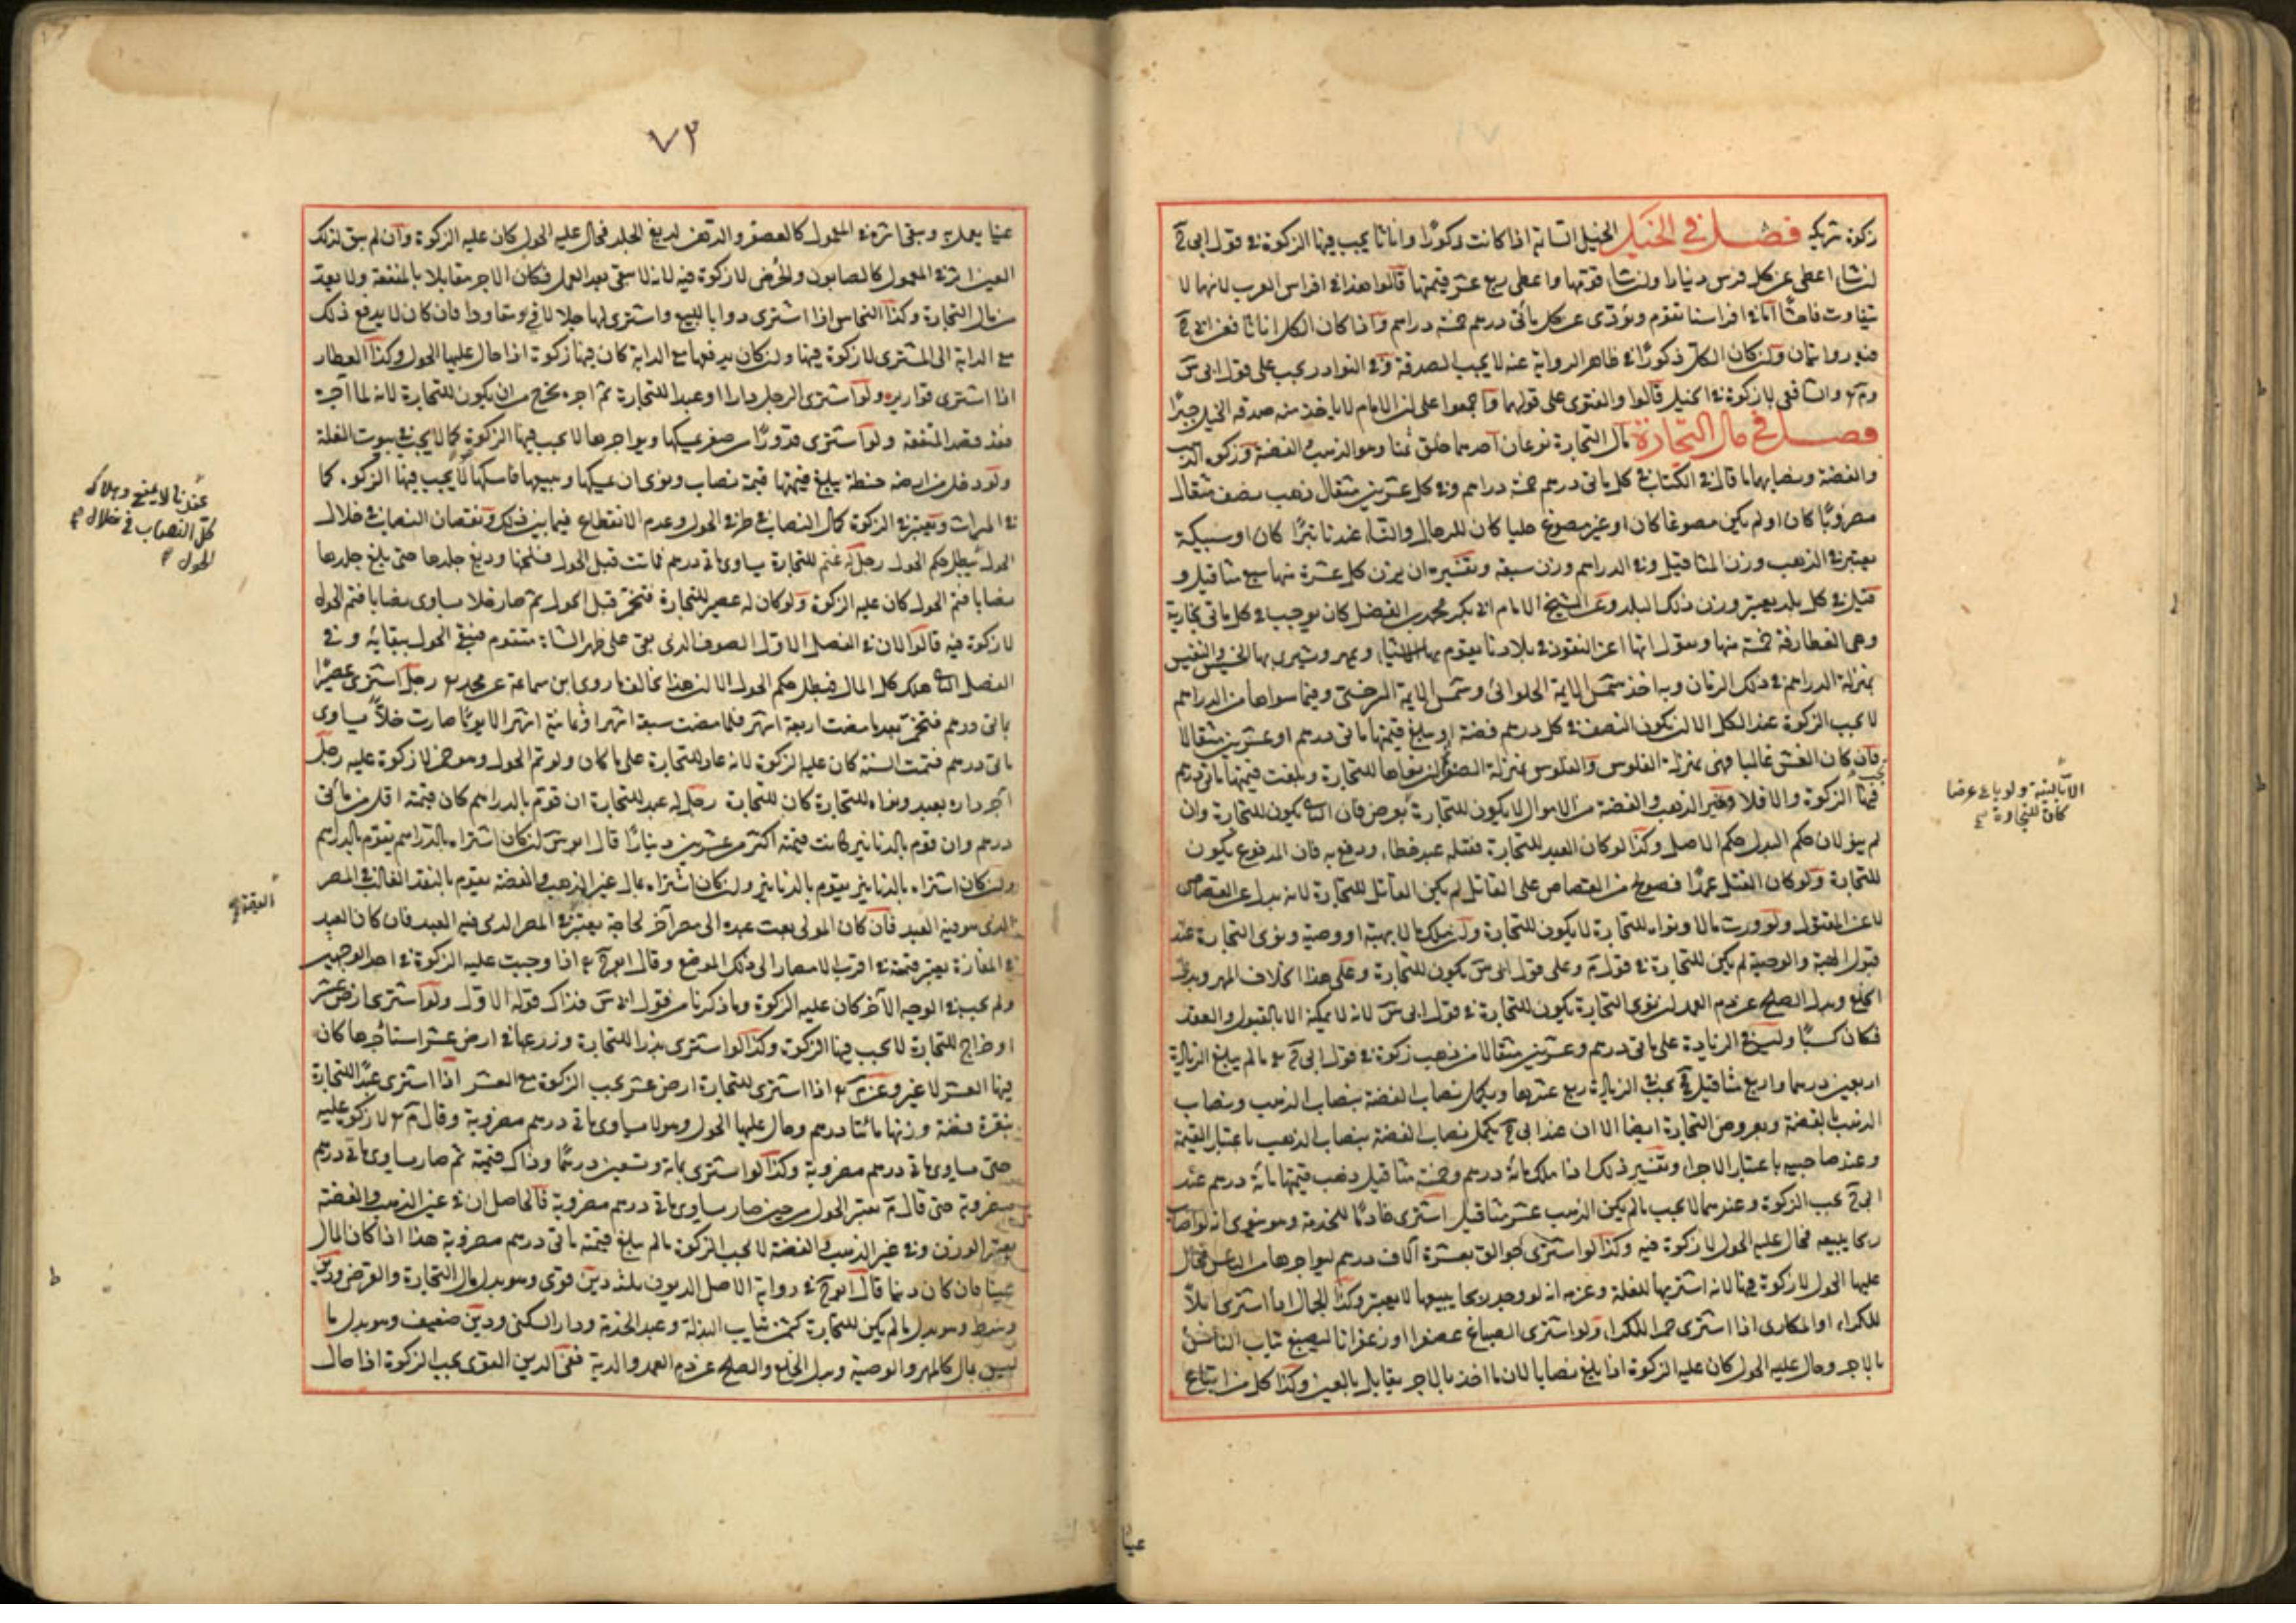 زكوة تركية فصل في الخيل الخيل السائمة اذا كانت ذكورًا واناثا يجب فيها الزكوة في قول ابى ح
ان شا اعطى عن كل فرس دينارا وان شا قومها واعطى ربع عشر قيمتها قالوا هذا في افراس العرب لانها لا
تتفاوت فاحشًا اما في افراسنا تقوم ويؤدى عن كل مأتى درهم خمسة دراهم واذا كان الكل اناثا فعن ابى ح
فيه روايتان وان كان الكل ذكورًا في ظاهر الرواية عنه لا يجب الصدقة وفي النوادر يجب على قول ابى س
وم والشافعى لا زكوة في الخيل قالوا والفتوى على قولهما واجمعوا على ان الامام لا ياخذ منه صدقة الخيل جبرًا
فصل في مال التجارة مال التجارة نوعان احدهما خلق ثمنا وهو الذهب والفضة وزكوة الذهب
والفضة ونصابهما ما قال في الكتاب في كل مأتى درهم خمسة دراهم وفي كل عشرين مثقال ذهب نصف مثقال
مضروبًا كان او لم يكن مصوغا كان او غير مصوغ حليا كان للرجال والنساء عندنا تبرًا كان او سبيكة
يعتبر في الذهب وزن المثاقيل وفي الدراهم وزن سبعة وتفسيره ان يزن كل عشرة منها سبع مثاقيل و
قيل في كل بلد يعتبر وزن ذلك البلد وعن الشيخ الامام ابى بكر محمد بن الفضل كان يوجب في كل مأتى بخارية
وهى الغطارفة خمسة منها ويقول انها اعز النقود في بلادنا يقوم بها الاشياء ويمهر ويشترى بها الخسيس والنفيس
بمنزلة الدراهم في ذلك الزمان وبه اخذ شمس الايمة الحلوائى وشمس الايمة السرخسى وفيما سواها من الدراهم
لا يجب الزكوة عند الكل الا ان يكون النصف في كل درهم فضة او يبلغ قيمتها مأتى درهم او عشرين مثقالا
فان كان الغش غالبا فهى بمنزلة الفلوس والفلوس بمنزلة الصفر ان نواها للتجارة وبلغت قيمتها مأتى درهم
يجب فيها الزكوة والا فلا وغير الذهب والفضة من الاموال لا يكون للتجارة بعوض فان الثانى يكون للتجارة وان
لم ينو لان حكم البدل حكم الاصل وكذا لو كان العبد للتجارة فقتله عبد خطاء ودفع به فان المدفوع يكون
للتجارة ولو كان القتل عمدًا فصولح من القصاص على القاتل لم يكن القاتل للتجارة لانه بدل عن القصاص
لا عن المقتول ولو ورث مالا ونواه للتجارة لا يكون للتجارة وان ملك مالا بهبة او وصية ونوى التجارة عند
قبول الهبة والوصية لم يكن للتجارة في قول م وعلى قول ابى س يكون للتجارة وعلى هذا الخلاف المهر وبدل
الخلع وبدل الصلح عن دم العمد ان نوى التجارة يكون للتجارة في قول ابى س لانه لا يملكه الا بالقبول والعقد
فكان كسبًا وليس في الزيادة على مأتى درهم وعشرين مثقالا من ذهب زكوة في قول ابى ح ما لم يبلغ الزيادة
اربعين درهما واربع مثاقيل يجب في الزيادة ربع عشرها ويكمل نصاب الفضة بنصاب الذهب ونصاب
الذهب بالفضة وبعروض التجارة ايضا الا ان عند ابى ح يكمل نصاب الفضة بنصاب الذهب باعتبار القيمة
وعند صاحبيه باعتبار الاجزاء وتفسير ذلك اذا ملك مائة درهم وخمسة مثاقيل ذهب قيمتها مائة درهم عند
ابى ح يجب الزكوة وعندهما لا يجب ما لم يكن الذهب عشر مثاقيل اشترى خادمًا للخدمة وهو ينوى انه لو اصاب
ربحا يبيعه فحال عليه الحول لا زكوة فيه وكذا لو اشترى جوالق بعشرة آلاف درهم ليواجرها من الناس فحال
عليها الحول لا زكوة فيها لانه اشتريها للغلة وعزمه انه لو وجد ربحا يبيعها لا يعتبر وكذا الجمال اذا اشترى ابلاً
للكراء او المكارى اذا اشترى حمرا للكراء ولو اشترى الصباغ عصفرا او زعفرانا ليصبغ ثياب الناس
بالاجر وحال عليه الحول كان عليه الزكوة اذا بلغ نصابا لان ما اخذ بالاجر يقابل بالعين وكذا كل من ابتاع
الا بالنية ولو باع عرضا
كان للتجارة
عينا
٧٣
عينا يعمل به ويبقى اثره في المعمول كالعصفر والدهن لدبغ الجلد فحال عليه الحول كان عليه الزكوة وان لم يبق لذلك
العين اثر في المعمول كالصابون والحرض لا زكوة فيه لانه لا يبقى بعد العمل فكان الاجر مقابلا بالمنفعة ولا يعد
من مال التجارة وكذا النخاس اذا اشترى دوابا للبيع واشترى لها جلالا ومقاودا فان كان لا يدفع ذلك
مع الدابة الى المشترى لا زكوة فيها وان كان يدفعها مع الدابة كان فيها زكوة اذا حال عليها الحول وكذا العطار
اذا اشترى قوارير ولو اشترى الرجل دارا او عبدا للتجارة ثم اجره يخرج من ان يكون للتجارة لانه لما آجره
فقد قصد المنفعة ولو اشترى قدورًا من صفر يمسكها ويواجرها لا يجب فيها الزكوة كما لا يجب في بيوت الغلة
ولو دخل من ارضه حنطة يبلغ قيمتها قيمة نصاب ونوى ان يمسكها ويبيعها فامسكها لا يجب فيها الزكوة كما
في الميراث ويعتبر في الزكوة كمال النصاب في طرفى الحول وعدم الانقطاع فيما بين ذلك ونقصان النصاب في خلال
الحول يبطل حكم الحول رجل له غنم للتجارة يساوى مأتى درهم فماتت قبل الحول فسلخها ودبغ جلدها حتى بلغ جلدها
نصابا فتم الحول كان عليه الزكوة ولو كان له عصير للتجارة فتخمر قبل الحول ثم صار خلا يساوى نصابا فتم الحول
لا زكوة فيه قالوا لان في الفصل الاول الصوف الذى بقى على ظهر الشاة متقوم فيبقى الحول ببقائه وفي
الفصل الثانى هلك كل المال فبطل حكم الحول الا ان هذا يخالف ما روى ابن سماعة عن محمد رجل اشترى عصيرًا
بمأتى درهم فتخمر بعد ما مضت اربعة اشهر فلما مضت سبعة اشهر او ثمانية اشهر الا يومًا صارت خلاً يساوى
مأتى درهم فتمت السنة كان عليه الزكوة لانه عاد للتجارة على ما كان ولو تم الحول وهو خمر لا زكوة عليه رجل
آجر داره بعبد ونواه للتجارة كان للتجارة رجل له عبد للتجارة ان قوم بالدراهم كان قيمته اقل من مأتى
درهم وان قوم بالدنانير كانت قيمته اكثر من عشرين دينارًا قال ابو س ان كان اشتراه بالدراهم يقوم بالدراهم
وان كان اشتراه بالدنانير يقوم بالدنانير وان كان اشتراه بمال غير الذهب والفضة يقوم بالنقد الغالب في المصر
الذى هو فيه العبد فان كان المولى بعث عبده الى مصر آخر لحاجة يعتبر في المصر الذى فيه العبد فان كان العبد
في المفازة يعتبر قيمته في اقرب الامصار الى ذلك الموضع وقال ابو ح اذا وجبت عليه الزكوة في احد الوجهين
ولم يجب في الوجه الآخر كان عليه الزكوة وما ذكرنا من قول ابى س فذاك قوله الاول ولو اشترى ارض عشر
او خراج للتجارة لا يجب فيها الزكوة وكذا لو اشترى بذرا للتجارة وزرعها في ارض عشر استأجرها كان
فيها العشر لا غير وعن م اذا اشترى للتجارة ارض عشر يجب الزكوة مع العشر اذا اشترى عبدًا للتجارة
بنقرة فضة وزنها مائتا درهم وحال عليها الحول وهو لا يساوى مأتى درهم مضروبة وقال م لا زكوة عليه
حتى يساوى مأتى درهم مضروبة وكذا لو اشترى بمائة وتسعين درهمًا وذاك قيمته ثم صار يساوى مأتى درهم
مضروبة حتى قال م يعتبر الحول من حين صار يساوى مأتى درهم مضروبة فالحاصل ان في عين الذهب والفضة
يعتبر الوزن وفي غير الذهب والفضة لا يجب الزكوة ما لم يبلغ قيمته مأتى درهم مضروبة هذا اذا كان المال
عينا فان كان دينا قال ابو ح في رواية الاصل الديون ثلثة دين قوى وهو بدل مال التجارة والقرض ودين
وسط وهو بدل ما لم يكن للتجارة كثمن ثياب البذلة وعبد الخدمة ودار السكنى ودين ضعيف وهو بدل ما
ليس بمال كالمهر والوصية وبدل الخلع والصلح عن دم العمد والدية ففى الدين القوى يجب الزكوة اذا حال
عندنا لا يمنع وهلاك
كل النصاب في خلال
الحول